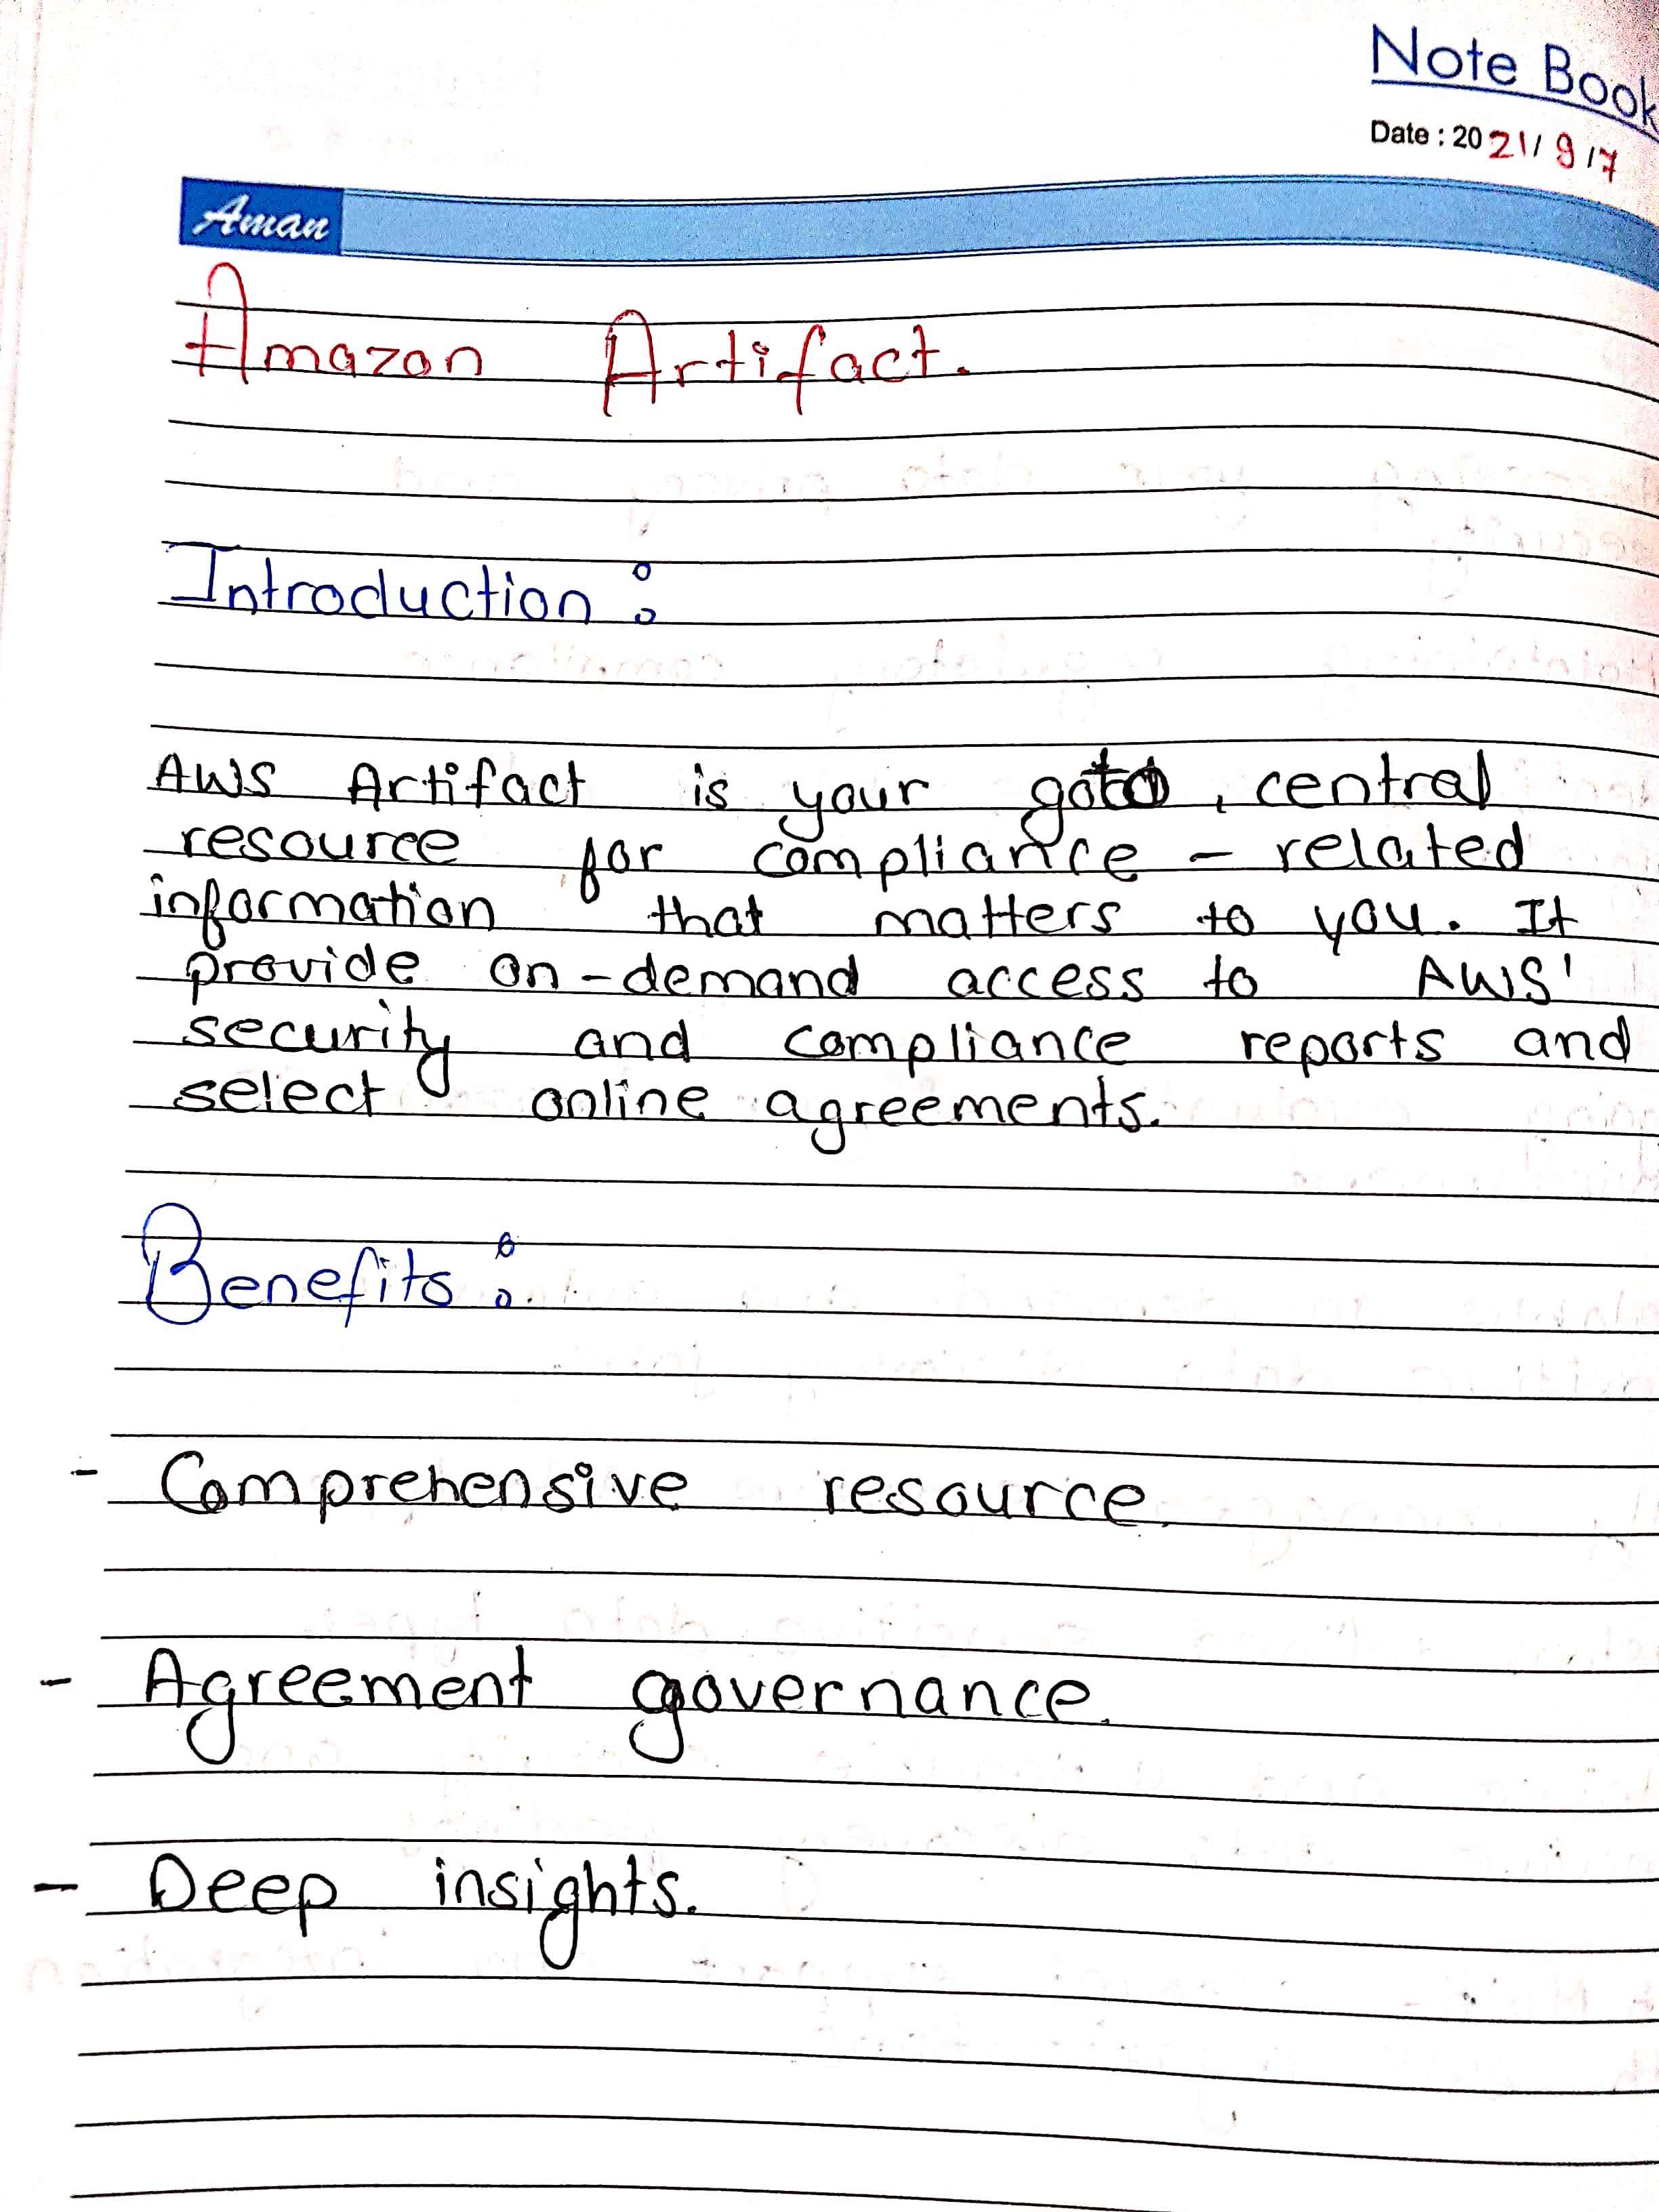 Note Book
Date : 2021/9/7
Aman
Amazon Artifact.
Introduction :
AWS Artifact is your goto, central
resource for compliance - related
information that matters to you. It
provide on-demand access to AWS'
security and compliance reports and
select online agreements.
Benefits :
- Comprehensive resource.
- Agreement governance.
- Deep insights.